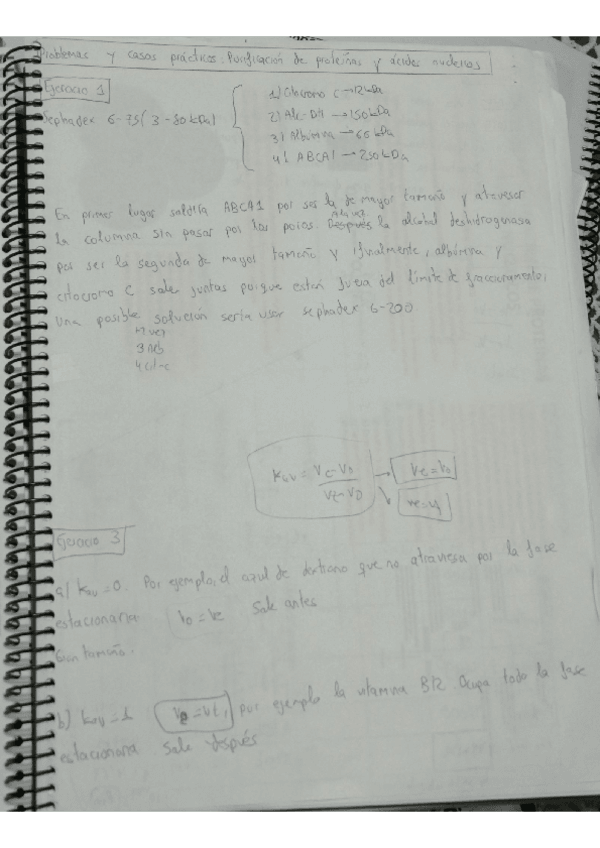 Problemas y casos prácticos: Purificación de proteínas y ácidos nucleicos
Ejercicio 1
Sephadex G-75 (3-80 kDa)
1) Citocromo C → 12 kDa
2) Alc-DH → 150 kDa
3) Albúmina → 66 kDa
4) ABCA1 → 250 kDa
En primer lugar saldría ABCA1 por ser la de mayor tamaño y atravesar
la columna sin pasar por los poros. Después la alcohol deshidrogenasa
A la vez
por ser la segunda de mayor tamaño y igualmente, albúmina y
citocromo C sale juntas porque están fuera del límite de fraccionamento,
Una posible solución sería usar sephadex G-200
1º vez
3 alb
4 cit-c
Kav = Ve-V0 / Vt-V0 → Ve=V0
Ejercicio 3
a) Kav=0. Por ejemplo, el azul de dextrano que no atraviesa por la fase
estacionaria V0 = Ve Sale antes
Gran tamaño.
b) Kav=1 Ve=Vt, por ejemplo la vitamina B12 Ocupa todo la fase
estacionaria Sale después